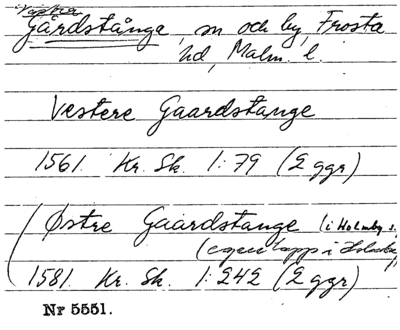 Västra
Gårdstånga, sn och by, Frosta
hd, Malm. l.
Vestere Gaardstange
1561. Kr. Sk. 1:79 (2 ggr)
(Østre Gaardstange (i Holmby s.
(egen lapp i Holmby)
1581. Kr. Sk. 1:242 (2 ggr)
Nr 5551.